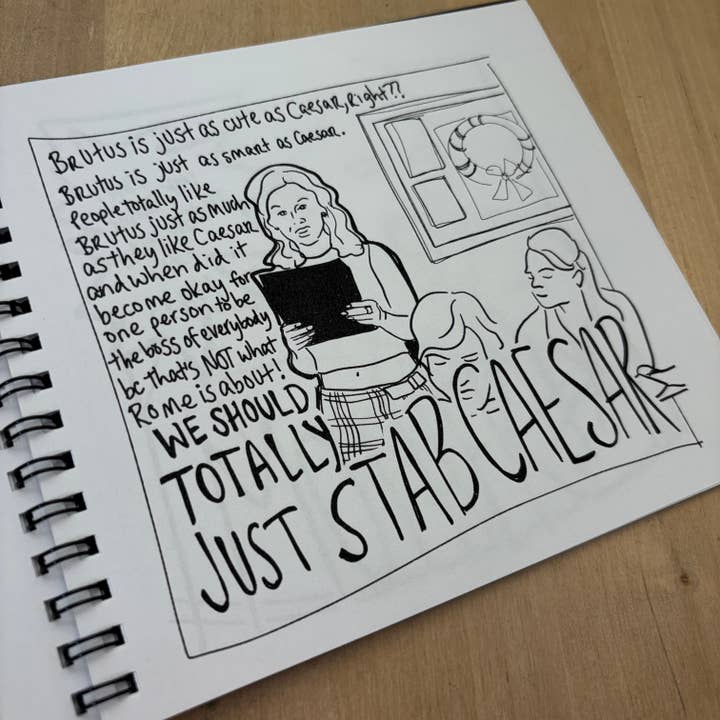 BRUtUS is just as cute as CaesaR, Right??
BRUtUS is just as smart as Caesar.
People totally like
BRUtUS just as much
as they like CaesaR
and when did it
become okay for
one person to be
the boss of everybody
bc that's NOT what
Rome is about!!
WE SHOULD
TOTALLY
JUST STAB CAESAR